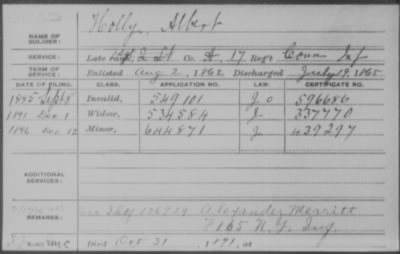 Holly, Albert
NAME OF SOLDIER:
SERVICE: Late 2 Lt Co. A, 17 Reg't Conn Inf
TERM OF SERVICE: Enlisted Aug 2, 1862 Discharged July 19, 1865
DATE OF FILING. CLASS. APPLICATION NO. LAW. CERTIFICATE NO.
1885 Sept 8 Invalid, 549101 G 596686
1891 Dec 1 Widow, 534584 337770
1896 Dec 12 Minor, 644871 439297
ADDITIONAL SERVICES:
REMARKS: 136929 Alexander Merritt
F 165 N.Y. Inf.
Died Oct 31, 1891, at